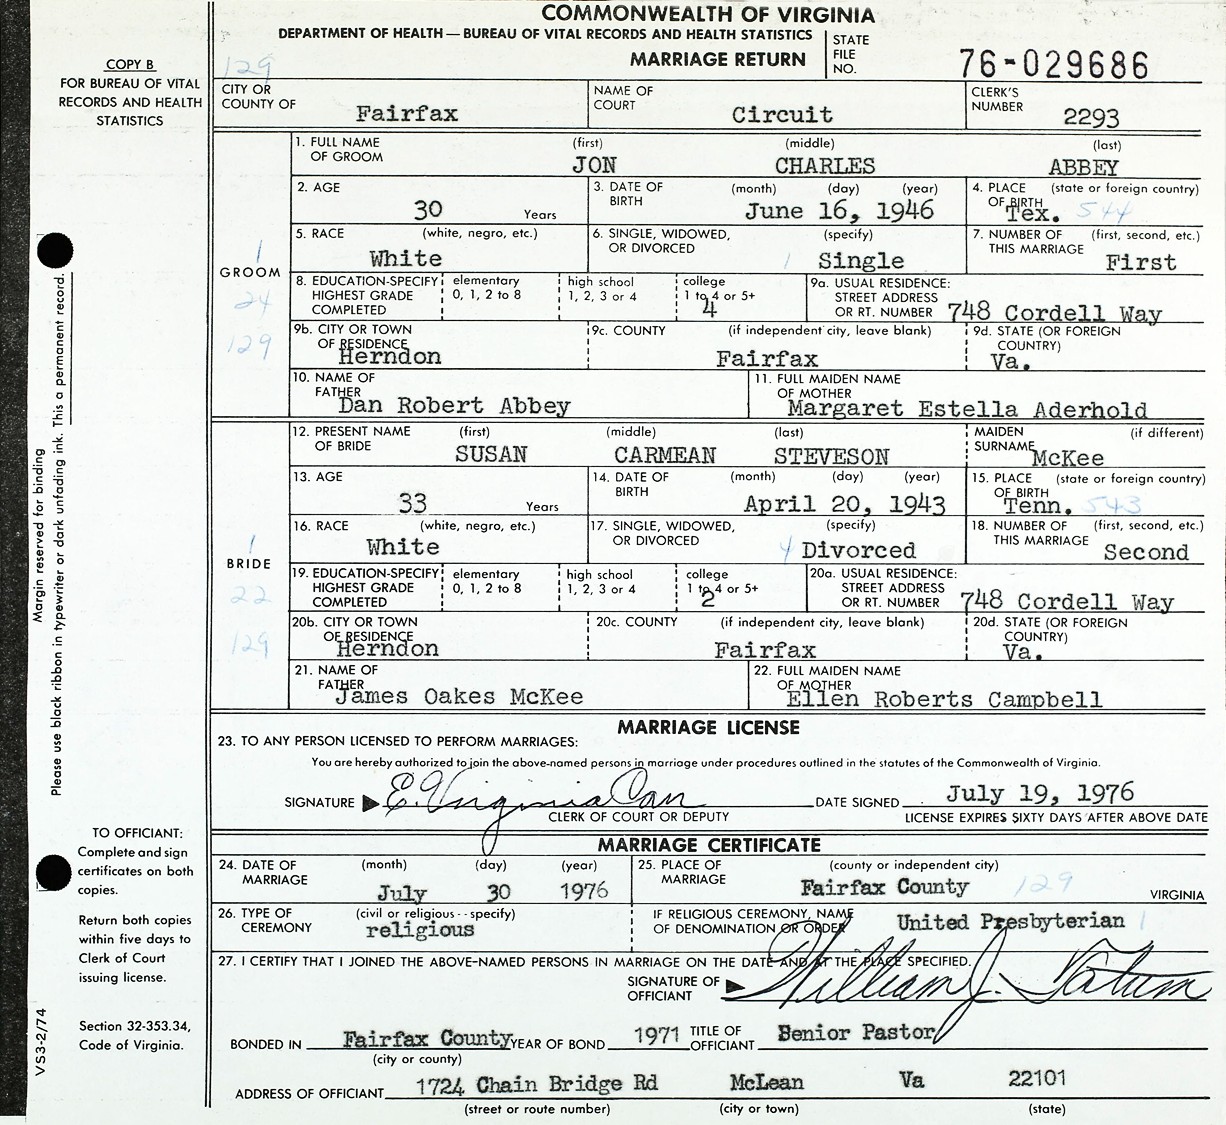 COMMONWEALTH OF VIRGINIA
DEPARTMENT OF HEALTH — BUREAU OF VITAL RECORDS AND HEALTH STATISTICS
MARRIAGE RETURN
STATE FILE NO. 76-029686
COPY B
FOR BUREAU OF VITAL
RECORDS AND HEALTH
STATISTICS
129
CITY OR COUNTY OF Fairfax NAME OF COURT Circuit CLERK'S NUMBER 2293
1. FULL NAME OF GROOM (first) JON (middle) CHARLES (last) ABBEY
2. AGE 30 Years 3. DATE OF BIRTH (month) (day) (year) June 16, 1946 4. PLACE OF BIRTH (state or foreign country) Tex. 544
5. RACE (white, negro, etc.) White 6. SINGLE, WIDOWED, OR DIVORCED (specify) 1 Single 7. NUMBER OF THIS MARRIAGE (first, second, etc.) First
1
GROOM
24
129
8. EDUCATION-SPECIFY HIGHEST GRADE COMPLETED elementary 0, 1, 2 to 8 high school 1, 2, 3 or 4 college 1 to 4 or 5+ 4 9a. USUAL RESIDENCE: STREET ADDRESS OR RT. NUMBER 748 Cordell Way
9b. CITY OR TOWN OF RESIDENCE Herndon 9c. COUNTY (if independent city, leave blank) Fairfax 9d. STATE (OR FOREIGN COUNTRY) Va.
10. NAME OF FATHER Dan Robert Abbey 11. FULL MAIDEN NAME OF MOTHER Margaret Estella Aderhold
12. PRESENT NAME OF BRIDE (first) SUSAN (middle) CARMEAN (last) STEVESON MAIDEN SURNAME (if different) McKee
13. AGE 33 Years 14. DATE OF BIRTH (month) (day) (year) April 20, 1943 15. PLACE OF BIRTH (state or foreign country) Tenn. 543
16. RACE (white, negro, etc.) White 17. SINGLE, WIDOWED, OR DIVORCED (specify) 4 Divorced 18. NUMBER OF THIS MARRIAGE (first, second, etc.) Second
1
BRIDE
22
129
19. EDUCATION-SPECIFY HIGHEST GRADE COMPLETED elementary 0, 1, 2 to 8 high school 1, 2, 3 or 4 college 1 to 4 or 5+ 2 20a. USUAL RESIDENCE: STREET ADDRESS OR RT. NUMBER 748 Cordell Way
20b. CITY OR TOWN OF RESIDENCE Herndon 20c. COUNTY (if independent city, leave blank) Fairfax 20d. STATE (OR FOREIGN COUNTRY) Va.
21. NAME OF FATHER James Oakes McKee 22. FULL MAIDEN NAME OF MOTHER Ellen Roberts Campbell
MARRIAGE LICENSE
23. TO ANY PERSON LICENSED TO PERFORM MARRIAGES:
You are hereby authorized to join the above-named persons in marriage under procedures outlined in the statutes of the Commonwealth of Virginia.
SIGNATURE E. Virginia Carr DATE SIGNED July 19, 1976
CLERK OF COURT OR DEPUTY LICENSE EXPIRES SIXTY DAYS AFTER ABOVE DATE
MARRIAGE CERTIFICATE
24. DATE OF MARRIAGE (month) (day) (year) July 30 1976 25. PLACE OF MARRIAGE (county or independent city) Fairfax County 129 VIRGINIA
26. TYPE OF CEREMONY (civil or religious -- specify) religious IF RELIGIOUS CEREMONY, NAME OF DENOMINATION OR ORDER United Presbyterian 1
27. I CERTIFY THAT I JOINED THE ABOVE-NAMED PERSONS IN MARRIAGE ON THE DATE AND AT THE PLACE SPECIFIED.
SIGNATURE OF OFFICIANT William J. Tatum
BONDED IN Fairfax County YEAR OF BOND 1971 TITLE OF OFFICIANT Senior Pastor
(city or county)
ADDRESS OF OFFICIANT 1724 Chain Bridge Rd McLean Va 22101
(street or route number) (city or town) (state)
Margin reserved for binding
Please use black ribbon in typewriter or dark unfading ink. This a permanent record.
TO OFFICIANT:
Complete and sign
certificates on both
copies.
Return both copies
within five days to
Clerk of Court
issuing license.
Section 32-353.34,
Code of Virginia.
VS3-2/74